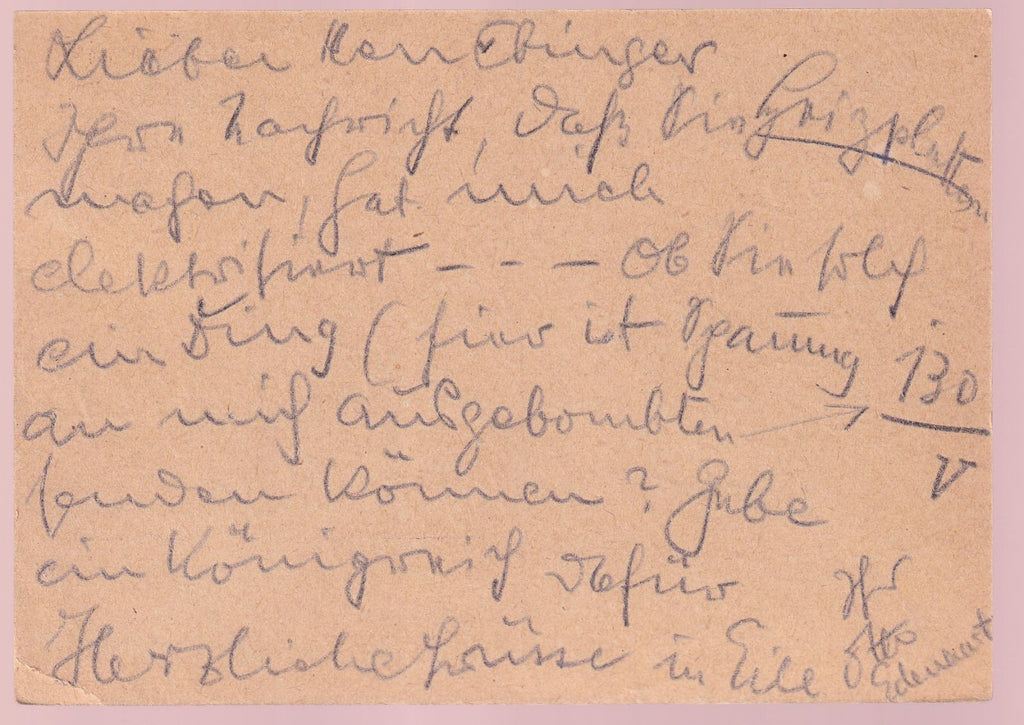 Lieber Herr Ebinger
Ihre Nachricht, daß Sie Heizplatten
machen, hat mich
elektrisiert - - - Ob Sie solch
ein Ding (hier ist Spannung 130
V
an mich ausgebombten
senden können? Gebe
ein Königreich dafür
Herzliche Grüsse in Eile Ihr
Otto